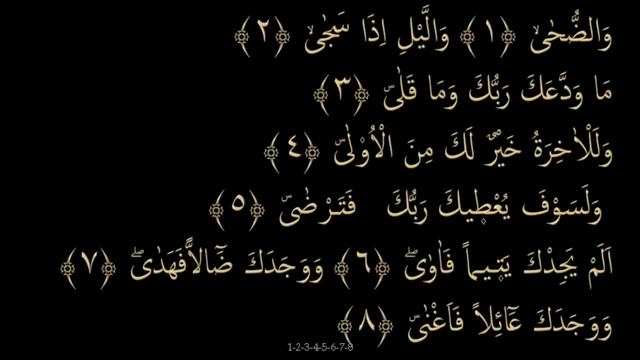 وَالضُّحٰىۙ ﴿١﴾ وَالَّيْلِ اِذَا سَجٰىۙ ﴿٢﴾
مَا وَدَّعَكَ رَبُّكَ وَمَا قَلٰىۜ ﴿٣﴾
وَلَلْاٰخِرَةُ خَيْرٌ لَكَ مِنَ الْاُو۫لٰىۜ ﴿٤﴾
وَلَسَوْفَ يُعْط۪يكَ رَبُّكَ فَتَرْضٰىۜ ﴿٥﴾
اَلَمْ يَجِدْكَ يَت۪يماً فَاٰوٰىۖ ﴿٦﴾ وَوَجَدَكَ ضَٓالاًّ فَهَدٰىۖ ﴿٧﴾
وَوَجَدَكَ عَٓائِلاً فَاَغْنٰىۜ ﴿٨﴾
1-2-3-4-5-6-7-8